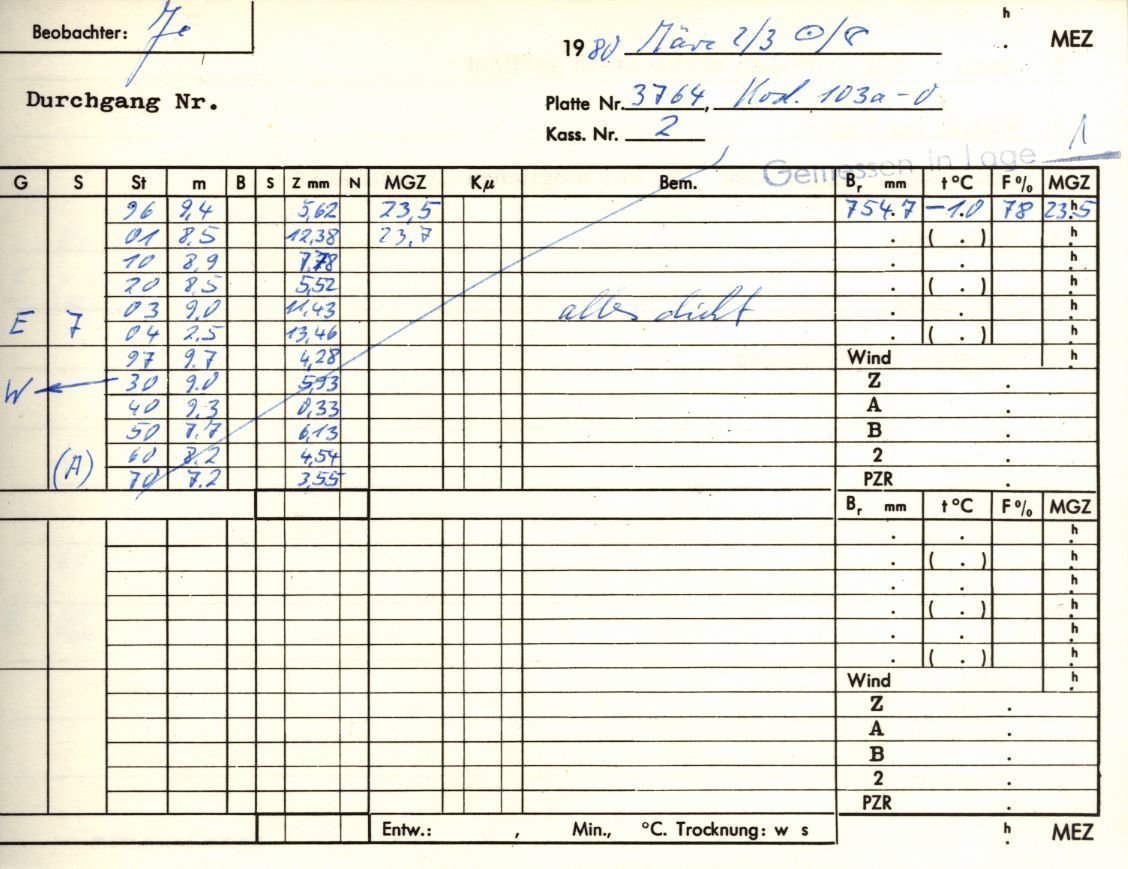 Beobachter: Je
h
.
MEZ
1980 März 2/3 ☉/☾
Durchgang Nr.
Platte Nr. 3764, Kod. 103a-O
Kass. Nr. 2
Gemessen in Lage 1
G S St m B S Z mm N MGZ Kμ Bem. Br mm t °C F % MGZ
96 9,4 5,62 23,5 754.7 -1.0 78 23.5 h
01 8.5 12,38 23,7 . ( . ) h
10 8,9 7,78 . . h
20 8,5 5,52 . ( . ) h
E 7 03 9,0 11,43 alles dicht . . h
04 2,5 13,46 . ( . ) h
97 9.7 4,28 Wind h
W 30 9.0 5,93 Z .
40 9,3 0,33 A .
50 7.7 6,13 B .
(A) 60 8.2 4,54 2 .
70 7.2 3,55 PZR .
Br mm t °C F % MGZ
. . h
. ( . ) h
. . h
. ( . ) h
. . h
. ( . ) h
Wind h
Z .
A .
B .
2 .
PZR .
Entw.: , Min., °C. Trocknung: w s
h
.
MEZ